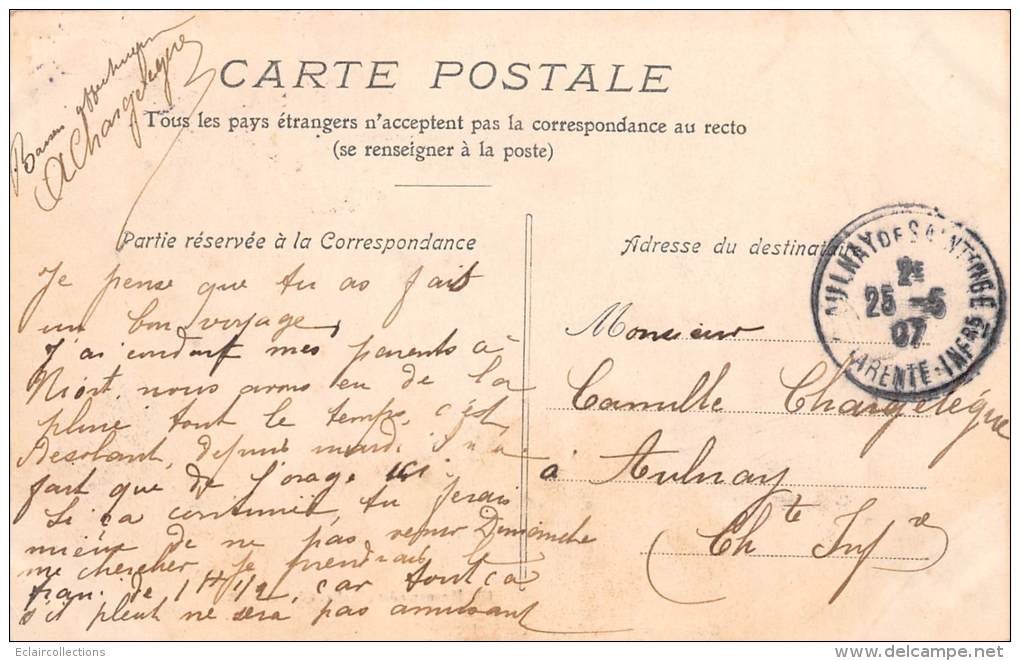 Baisers affectueux
A Chargelègue
CARTE POSTALE
Tous les pays étrangers n'acceptent pas la correspondance au recto
(se renseigner à la poste)
Partie réservée à la Correspondance
Je pense que tu as fait
un bon voyage,
J'ai conduit mes parents à
Niort, nous avons eu de la
pluie tout le temps, c'est
desolant, depuis mardi il n'a
fait que de l'orage ici.
Si ça continue, tu ferais
mieux de ne pas venir Dimanche
me chercher je prendrais le
train de 1 H 1/2, car tout ça
s'il pleut ne sera pas amusant
Adresse du destinataire
AULNAY DE SAINTONGE
2E
25 -5
07
CHARENTE-INFRE
Monsieur
Camille Chargelègue
à Aulnay
Ch te Inf re
Eclaircollections
www.delcampe.net